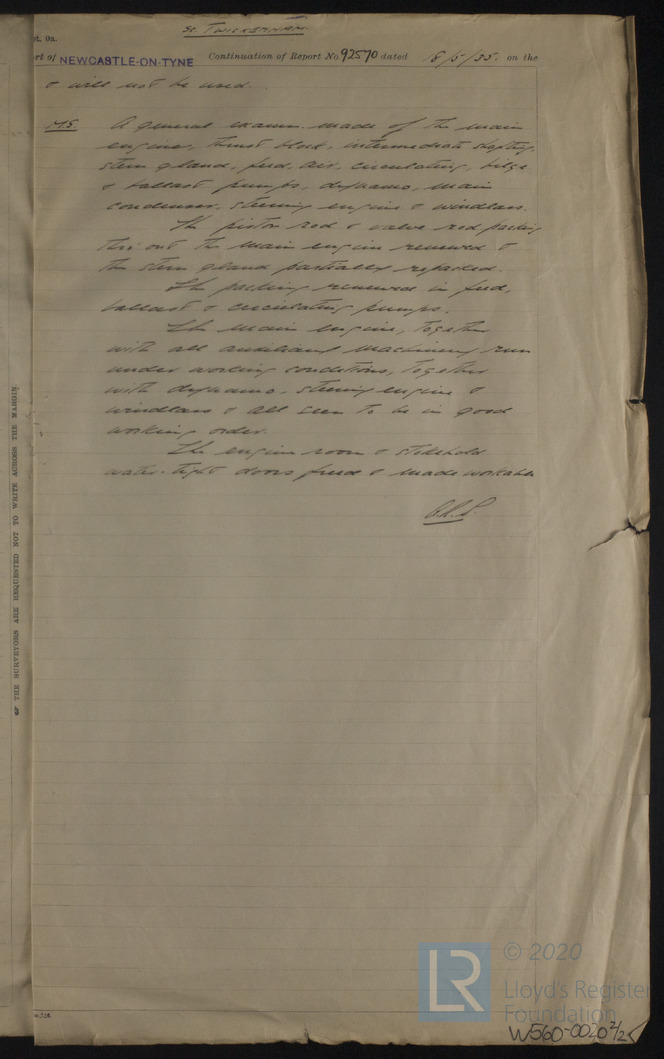 SS. TWICKENHAM.
pt. 9a.
rt of NEWCASTLE-ON-TYNE Continuation of Report No. 92570 dated 18/5/35. on the
& will not be used.
M.S. A general examn. made of the main
engine, thrust block, intermediate shafting,
stern gland, feed, air, circulating, bilge
& ballast pumps, dynamo, main
condenser, steering engine & windlass.
The piston rod & valve rod packing
thro' out the main engine renewed &
the stern gland partially repacked.
The packing renewed in feed,
ballast & circulating pumps.
The main engine, together
with all auxiliary machinery run
under working conditions, together
with dynamo, steering engine &
windlass & all seen to be in good
working order.
The engine room & stokehold
water-tight doors freed & made workable
THE SURVEYORS ARE REQUESTED NOT TO WRITE ACROSS THE MARGIN
LR
© 2020
Lloyd's Register
Foundation
W560-0020 2/2